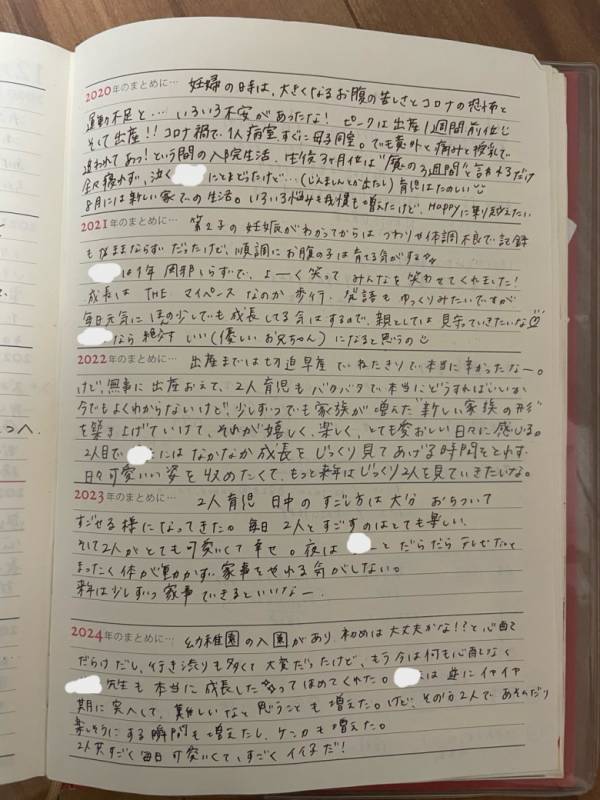 2020年のまとめに… 妊婦の時は、大きくなるお腹の苦しさとコロナの恐怖と
運動不足と… いろいろ不安があったな! ピークは出産1週間前位
そして出産!! コロナ禍で1人病室すぐに母子同室。でも意外と痛みと授乳で
追われてあっ!という間の入院生活。生後3ヶ月位は"魔の3週間"と言われるだけ
全く寝れず、泣く にとまどったけど…(じんましんとか出たし) 育児はたのしい
8月には新しい家での生活。いろいろ悩みも我慢も増えたけど、HAPPYに乗り越えたい
2021年のまとめに… 第2子の妊娠がわかってからは つわりや体調不良で記録
もなかなかままならずだったけど、順調にお腹の子は育てる気がする
は1年 周りいらずで、よーく笑って みんなを笑わせてくれました!
成長は THE マイペース なのか 歩行、発語も ゆっくりみたいですが
毎日元気に ほんの少しでも成長してる気はするので、親としては 見守っていきたいな
なら 絶対 いい(優しいお兄ちゃん)になると思うの
2022年のまとめに… 出産までは切迫早産で ねたきりで本当に辛かったなー。
けど、無事に出産おえて、2人育児も バタバタで本当にどうすればいいか
今でもよくわからないけど 少しずつでも家族が増えた"新しい家族の形"
を築き上げていけて、それが嬉しく、楽しく、とても愛おしい日々に感じる。
2人目で には なかなか成長をじっくり見てあげる時間をとれず
日々可愛いい姿を収めたくて、もっと来年はじっくり2人を見ていきたいな。
2023年のまとめに… 2人育児 日中のすごし方は大分 おちついて
すごせる様になってきた。毎日 2人とすごすのはとても楽しい。
そして2人がとても可愛いくて幸せ。夜は とだらだらテレビだと
まったく体が動かず 家事をやれる気がしない。
来年は少しずつ 家事できるといいなー。
2024年のまとめに… 幼稚園の入園があり、初めは大丈夫かな!?と心配
だらけだし、行き渋りも多くて大変だったけど、もう今は何も心配なく
先生も 本当に成長した ってほめてくれた。 は逆にイヤイヤ
期に突入して、難しいなと思うことも増えた。けど、その分2人であそんだり
楽しそうにする瞬間も増えたし、ケンカも増えた。
2人共すごく毎日可愛いくて、すごくイイ子だ!